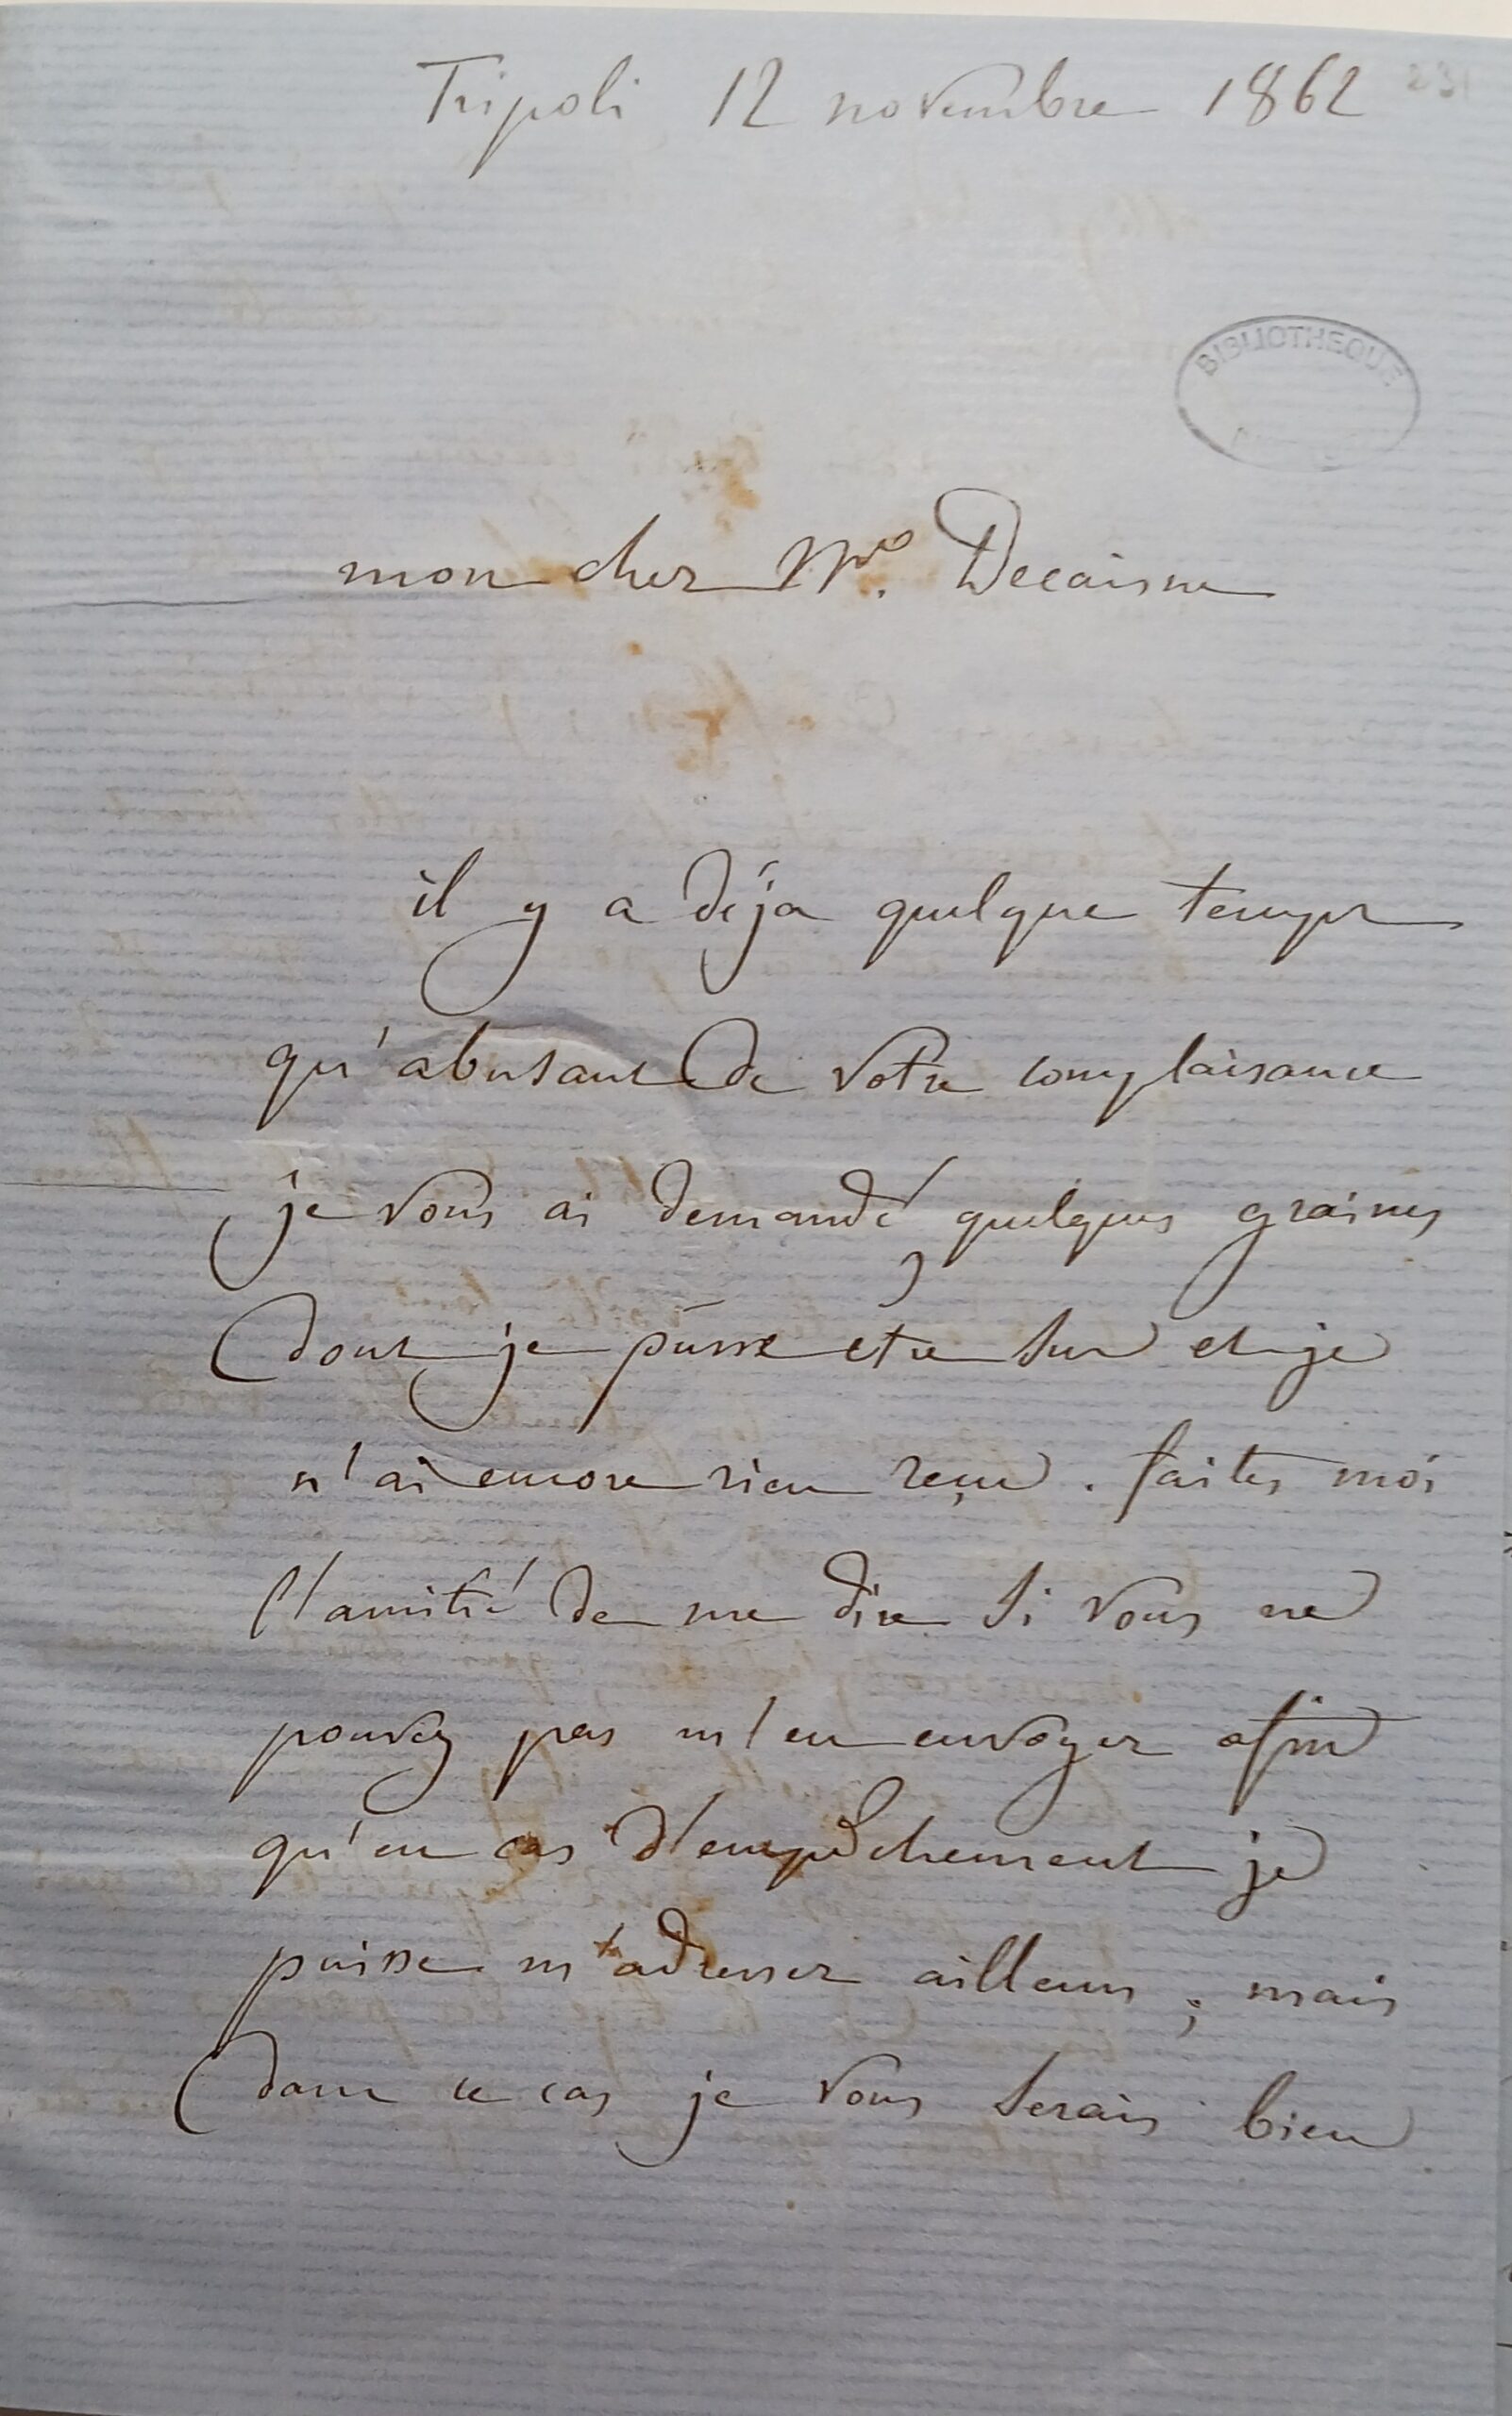 Tripoli 12 novembre 1862
231
BIBLIOTHEQUE
mon cher Mr. Decaisne
il y a déja quelque temps
qu'abusant de votre complaisance
je vous ai demandé quelques graines
dont je pusse etre sur et je
n'ai encore rien reçu . faites moi
l'amitié de me dire si vous ne
pouvez pas m'en envoyer afin
qu'en cas d'empêchement je
puisse m'adresser ailleurs ; mais
dans ce cas je vous serais bien